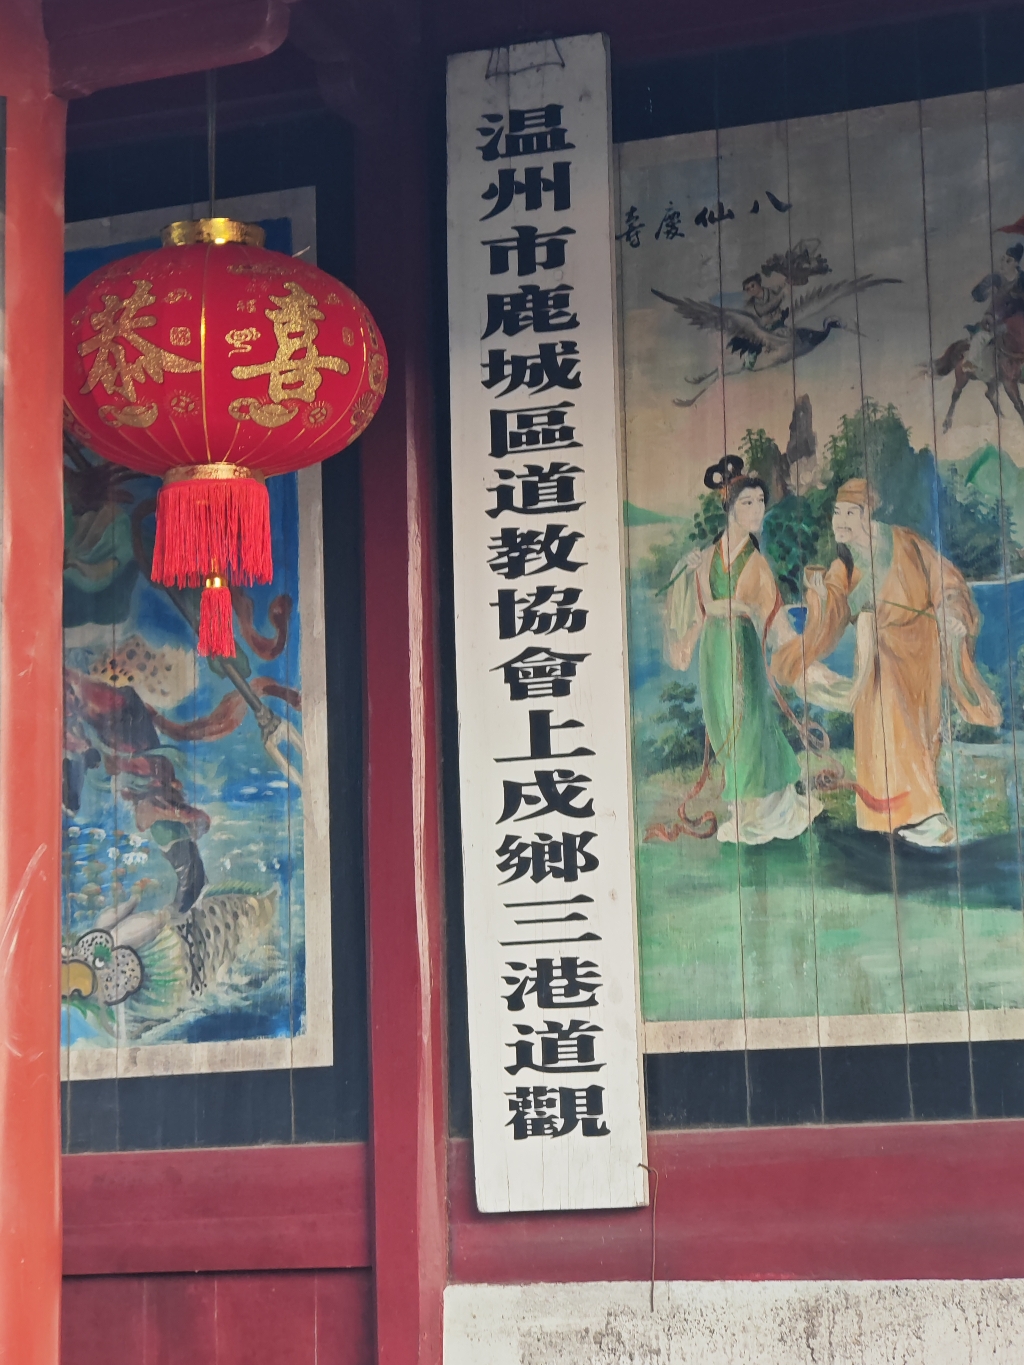 恭喜
温州市鹿城區道教協會上戍鄉三港道觀
八仙慶壽